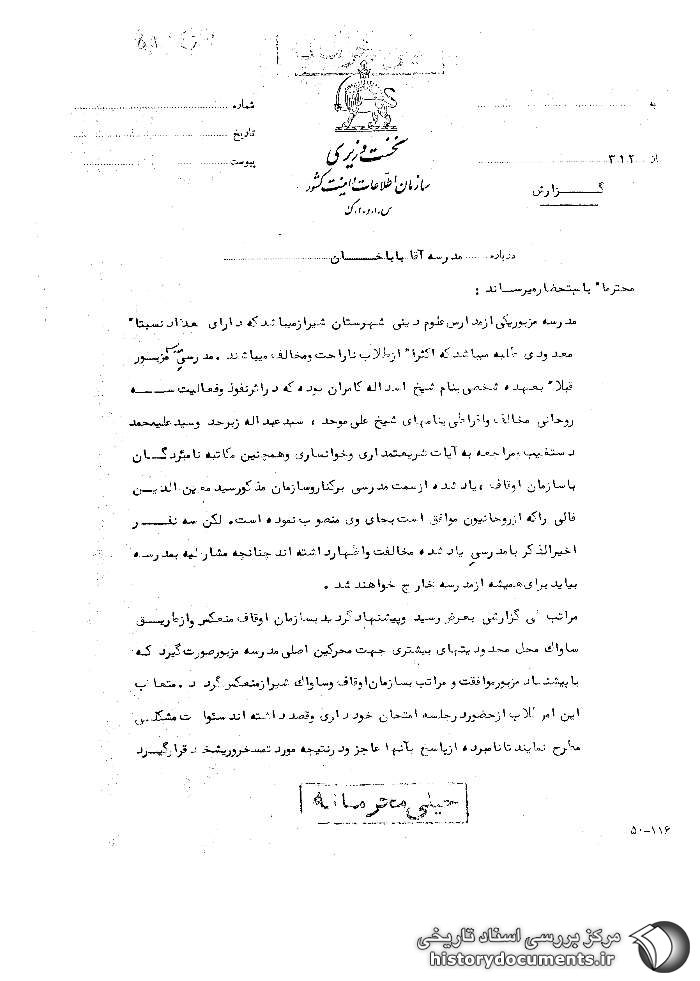 به
شماره
تاریخ
از ۳۱۲
پیوست
نخست وزیری
سازمان اطلاعات و امنیت کشور
س.ا.و.ا.ک
گزارش
درباره مدرسه آقا باباخان
محترما" باستحضار میرساند :
مدرسه مزبور یکی از مدارس علوم دینی شهرستان شیراز میباشد که دارای تعداد نسبتا"
معدودی طلبه میباشد که اکثرا" از طلاب ناراحت و مخالف میباشند . مدرسی مزبور
قبلا" بعهده شخصی بنام شیخ اسداله کامران بوده که در اثر نفوذ و فعالیت سه
روحانی مخالف و افراطی بنامهای شیخ علی موحد ، سید عبداله زبرجد و سید علیمحمد
دستغیب ، مراجعه به آیات شریعتمداری و خوانساری و همچنین مکاتبه نامبردگان
با سازمان اوقاف ، یاد شده از سمت مدرسی برکنار و سازمان مذکور سید معین الدین
فالی را که از روحانیون موافق است بجای وی منصوب نموده است . لکن سه نفر
اخیرالذکر با مدرسی یاد شده مخالفت و اظهار داشته اند چنانچه مشارالیه بمدرسه
بیاید برای همیشه از مدرسه خارج خواهند شد .
مراتب طی گزارشی بعرض رسید و پیشنهاد گردید بسازمان اوقاف منعکس و از طریق
ساواک محل محدودیتهای بیشتری جهت محرکین اصلی مدرسه مزبور صورت گیرد که
با پیشنهاد مزبور موافقت و مراتب بسازمان اوقاف و ساواک شیراز منعکس گردید . متعاقب
این امر طلاب از حضور در جلسه امتحان خودداری و قصد داشته اند سئوالات مشکلی
مطرح نمایند تا نامبرده از پاسخ بآنها عاجز و در نتیجه مورد تمسخر و ریشخند قرار گیرد
خیلی محرمانه
۵۰-۱۱۶
مرکز بررسی اسناد تاریخی
historydocuments.ir